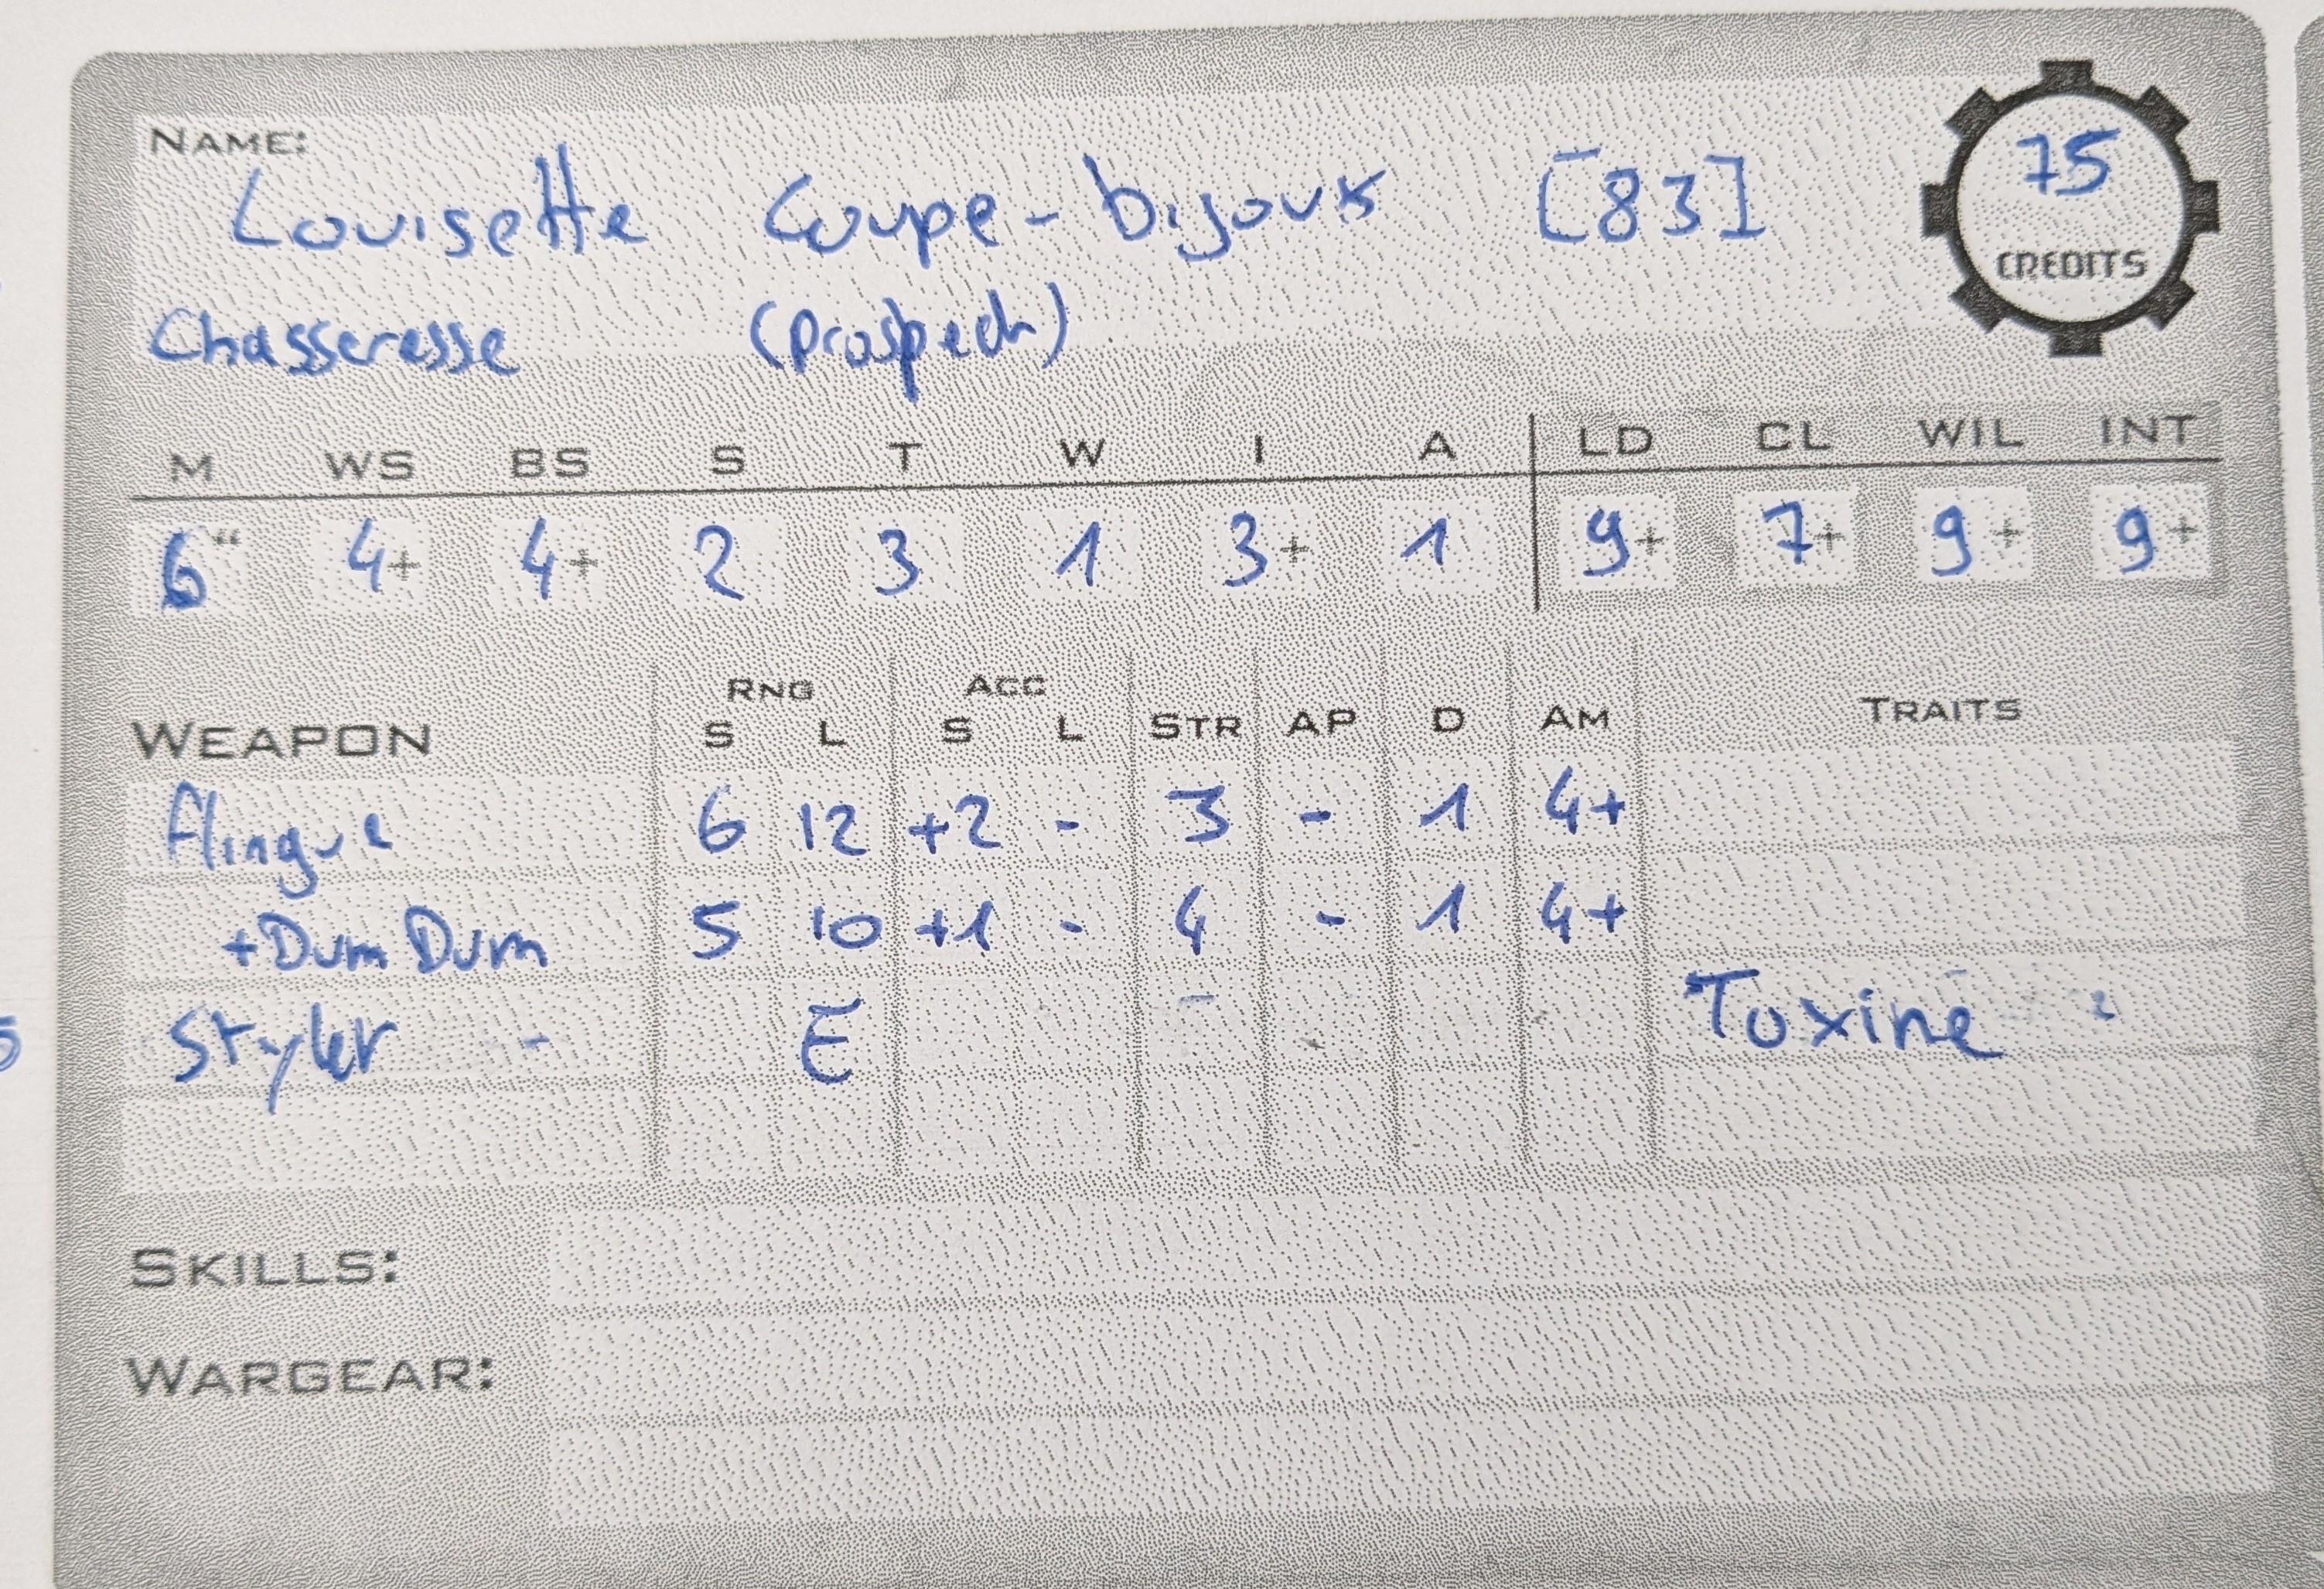 NAME:
Louisette Coupe-bijoux [83]
75
CREDITS
Chasseresse (Prospech)
M WS BS S T W I A LD CL WIL INT
6" 4+ 4+ 2 3 1 3+ 1 9+ 7+ 9+ 9+
RNG ACC
WEAPON S L S L STR AP D AM TRAITS
Flingue 6 12 +2 - 3 - 1 4+
+Dum Dum 5 10 +1 - 4 - 1 4+
Styler - E Toxine
SKILLS:
WARGEAR: